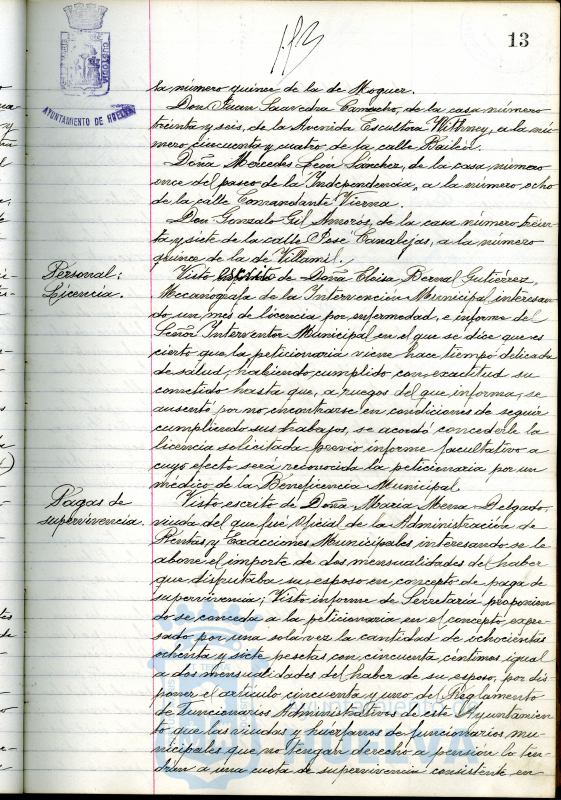 13
AYUNTAMIENTO DE HUELVA
la número quince de la de Moguer.
Don Juan Saavedra Camacho, de la casa número
treinta y seis, de la Avenida Escultora Whitney, a la nú-
mero cincuenta y cuatro de la calle Bailén.
Doña Mercedes León Sánchez, de la casa número
once del paseo de la Independencia, a la número ocho
de la calle Comandante Vierna.
Don Gonzalo Gil Amorós, de la casa número trein-
ta y siete de la calle José Canalejas, a la número
quince de la de Villamil.
Personal:
Licencia.
Visto escrito de Doña Eloisa Bernal Gutiérrez,
Mecanógrafa de la Intervención Municipal interesan-
do un mes de licencia por enfermedad, e informe del
Señor Interventor Municipal en el que se dice que es
cierto que la peticionaria viene hace tiempo delicada
de salud, habiendo cumplido con exactitud su
cometido hasta que, a ruegos del que informa, se
ausentó por no encontrarse en condiciones de seguir
cumpliendo sus trabajos, se acordó concederle la
licencia solicitada previo informe facultativo a
cuyo efecto será reconocida la peticionaria por un
médico de la Beneficencia Municipal
Pagas de
supervivencia.
Visto escrito de Doña María Mena Delgado,
viuda del que fué Oficial de la Administración de
Rentas y Exacciones Municipales interesando se le
abone el importe de dos mensualidades del haber
que disfrutaba su esposo en concepto de paga de
supervivencia; Visto informe de Secretaría proponien-
do se conceda a la peticionaria en el concepto expre-
sado por una sola vez la cantidad de ochocientas
ochenta y siete pesetas con cincuenta céntimos igual
a dos mensualidades del haber de su esposo, por dis-
poner el artículo cincuenta y uno del Reglamento
de Funcionarios Administrativos de este Ayuntamien-
to que las viudas y huérfanos de funcionarios mu-
nicipales que no tengan derecho a pensión la ten-
drán a una cuota de supervivencia consistente en